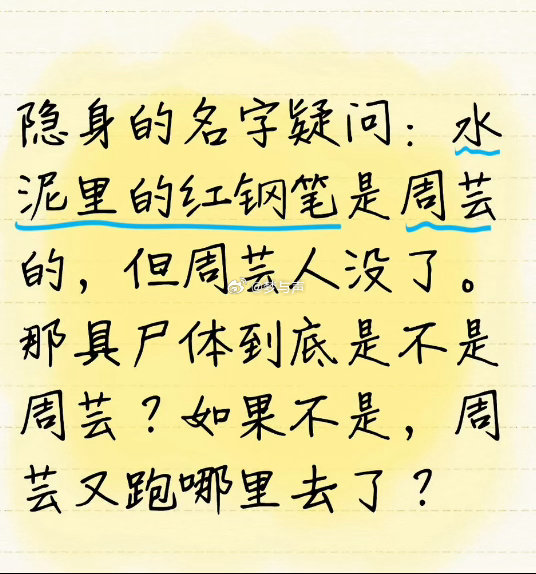 隐身的名字疑问：水
泥里的红钢笔是周芸
的，但周芸人没了。
那具尸体到底是不是
周芸？如果不是，周
芸又跑哪里去了？